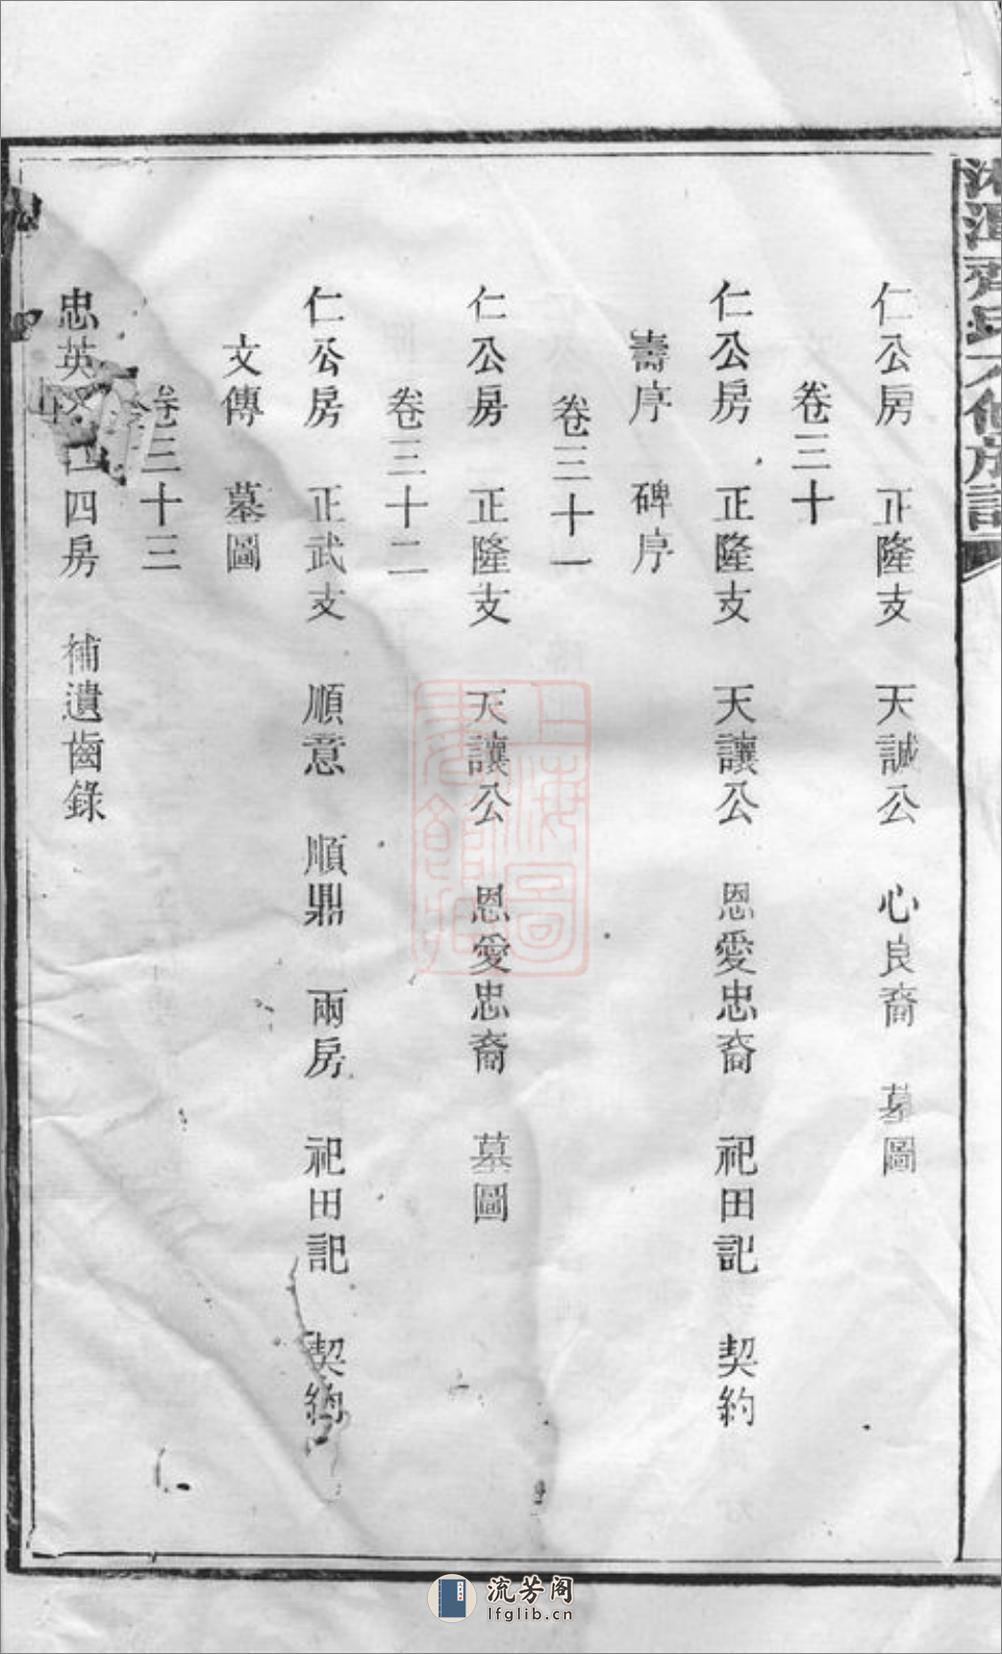 仁公房　正隆支　天誠公　心良裔　墓圖
卷三十
仁公房　正隆支　天讓公　恩愛忠裔　祀田記　契約
壽序　碑序
卷三十一
仁公房　正隆支　天讓公　恩愛忠裔　墓圖
卷三十二
仁公房　正武支　順意　順鼎　兩房　祀田記　契約
文傳　墓圖
卷三十三
忠英　四房　補遺齒錄
上海圖書館藏
流芳阁
lfglib.cn